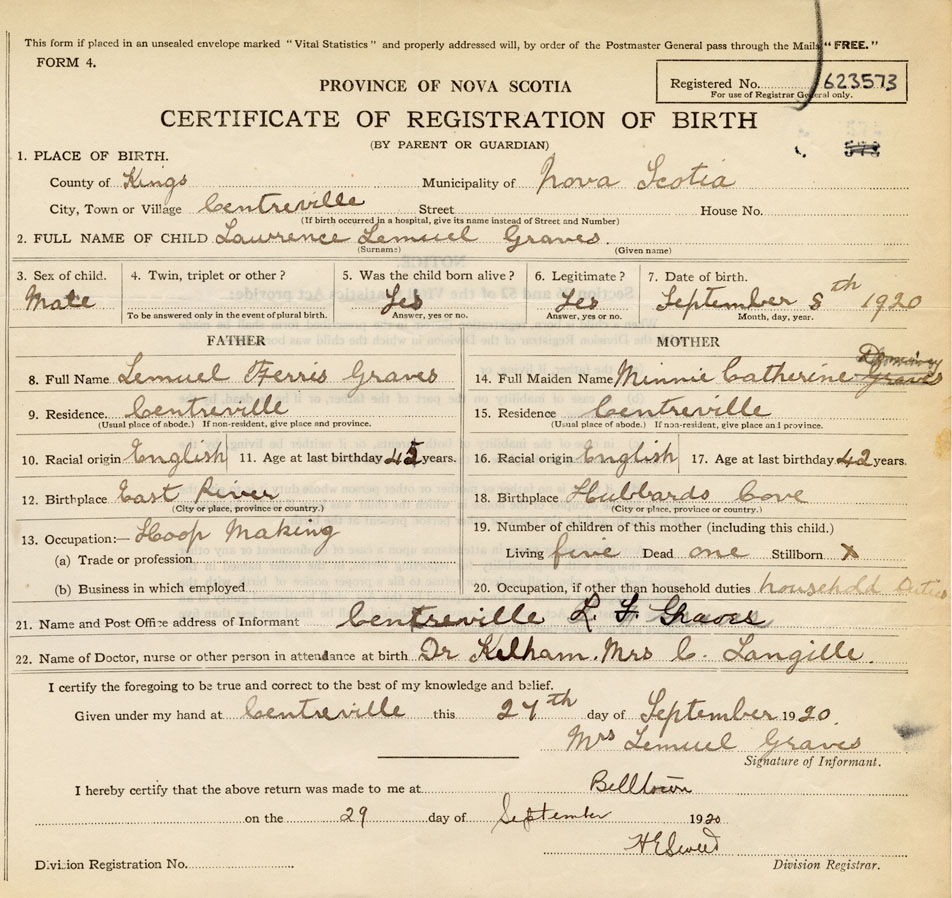 This form if placed in an unsealed envelope marked "Vital Statistics" and properly addressed will, by order of the Postmaster General pass through the Mails "FREE."
FORM 4.
Registered No. 623573
For use of Registrar General only.
PROVINCE OF NOVA SCOTIA
CERTIFICATE OF REGISTRATION OF BIRTH
(BY PARENT OR GUARDIAN)
1. PLACE OF BIRTH.
County of Kings Municipality of Nova Scotia
City, Town or Village Centreville Street House No.
(If birth occurred in a hospital, give its name instead of Street and Number)
2. FULL NAME OF CHILD Lawrence Lemuel Graves.
(Surname) (Given name)
3. Sex of child. 4. Twin, triplet or other? 5. Was the child born alive? 6. Legitimate? 7. Date of birth.
Male Yes Yes September 8th 1920
To be answered only in the event of plural birth. Answer, yes or no. Answer, yes or no. Month, day, year.
FATHER MOTHER
8. Full Name Lemuel Ferris Graves 14. Full Maiden Name Minnie Catherine Graves
9. Residence Centreville 15. Residence Centreville
(Usual place of abode.) If non-resident, give place and province. (Usual place of abode.) If non-resident, give place and province.
10. Racial origin English 11. Age at last birthday 45 years. 16. Racial origin English 17. Age at last birthday 42 years.
12. Birthplace East River 18. Birthplace Hubbards Cove
(City or place, province or country.) (City or place, province or country.)
13. Occupation:— Hoop Making 19. Number of children of this mother (including this child.)
(a) Trade or profession Living five Dead one Stillborn X
(b) Business in which employed 20. Occupation, if other than household duties household Duties
21. Name and Post Office address of Informant Centreville L. F. Graves
22. Name of Doctor, nurse or other person in attendance at birth Dr Kelham. Mrs C. Langille.
I certify the foregoing to be true and correct to the best of my knowledge and belief.
Given under my hand at Centreville this 27th day of September 1920.
Mrs Lemuel Graves
Signature of Informant.
I hereby certify that the above return was made to me at Belltown
on the 29 day of September 1920
Division Registration No. Division Registrar.